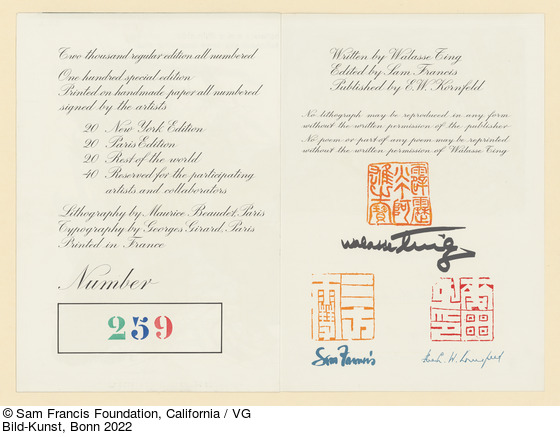 Two thousand regular edition all numbered
One hundred special edition
Printed on handmade paper all numbered
signed by the artists
20 New York Edition
20 Paris Edition
20 Rest of the world
40 Reserved for the participating
artists and collaborators
Lithography by Maurice Beaudet, Paris
Typography by Georges Girard, Paris
Printed in France
Number
259
Written by Walasse Ting
Edited by Sam Francis
Published by E.W. Kornfeld
No lithograph may be reproduced in any form
without the written permission of the publisher
No poem or part of any poem may be reprinted
without the written permission of Walasse Ting
walasse Ting
Sam Francis
© Sam Francis Foundation, California / VG
Bild-Kunst, Bonn 2022